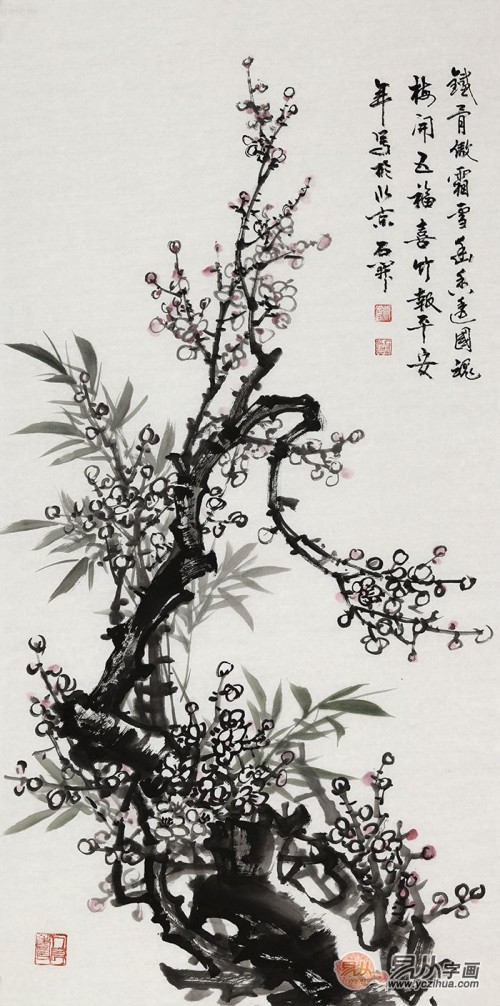 鐵骨傲霜雪幽香透國魂
梅開五福喜竹報平安
年写於北京石开
易从字画
www.yczihua.com